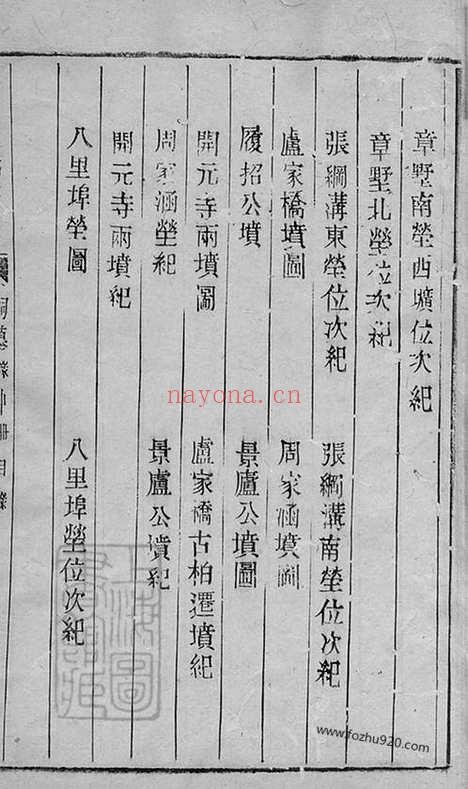 章墅南塋西壙位次紀
章墅北塋位次紀
張綱溝東塋位次紀　張綱溝南塋位次紀
盧家橋墳圖　周家涵墳圖
履招公墳　景廬公墳圖
開元寺兩墳圖　盧家橋古柏遷墳紀
周家涵塋紀　景廬公墳紀
開元寺兩墳紀
八里埠塋圖　八里埠塋位次紀
祠墓錄 冊目錄
nayona.cn
www.fozhu920.com